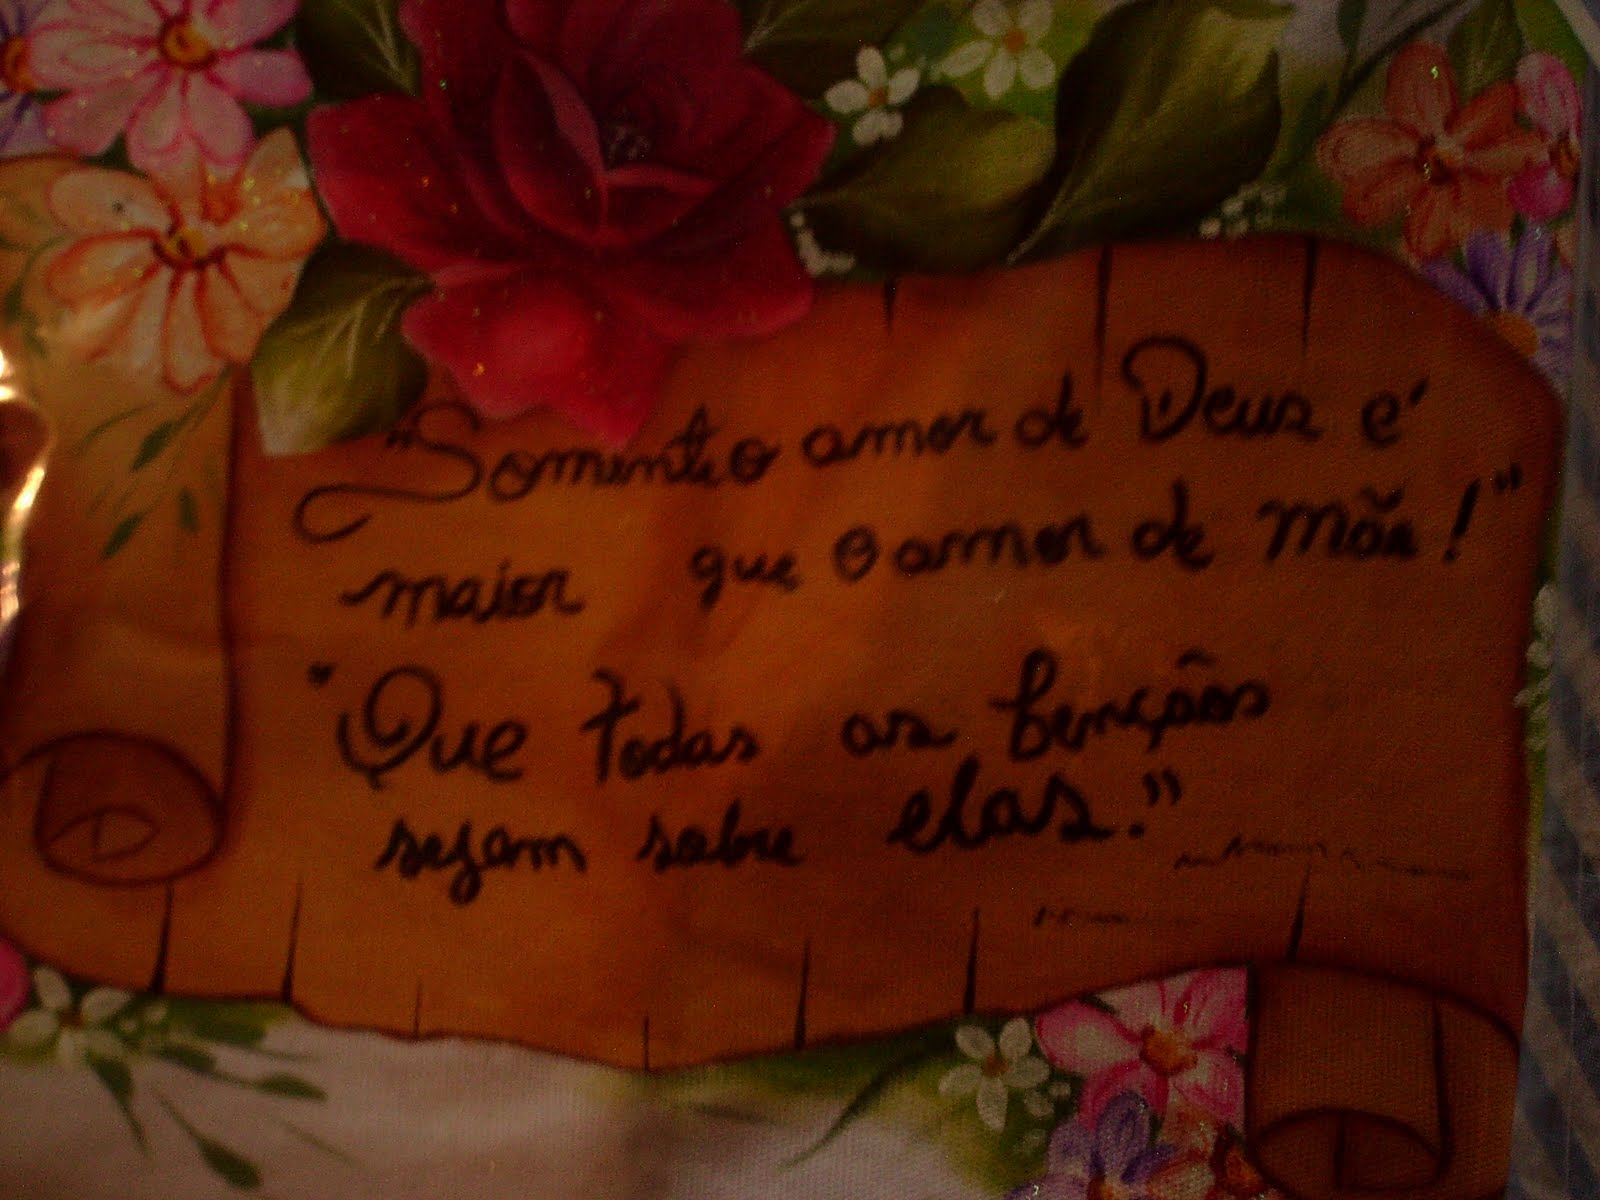 "Somente o amor de Deus é
maior que o amor de mãe!"
"Que todas as bençãos
sejam sobre elas."